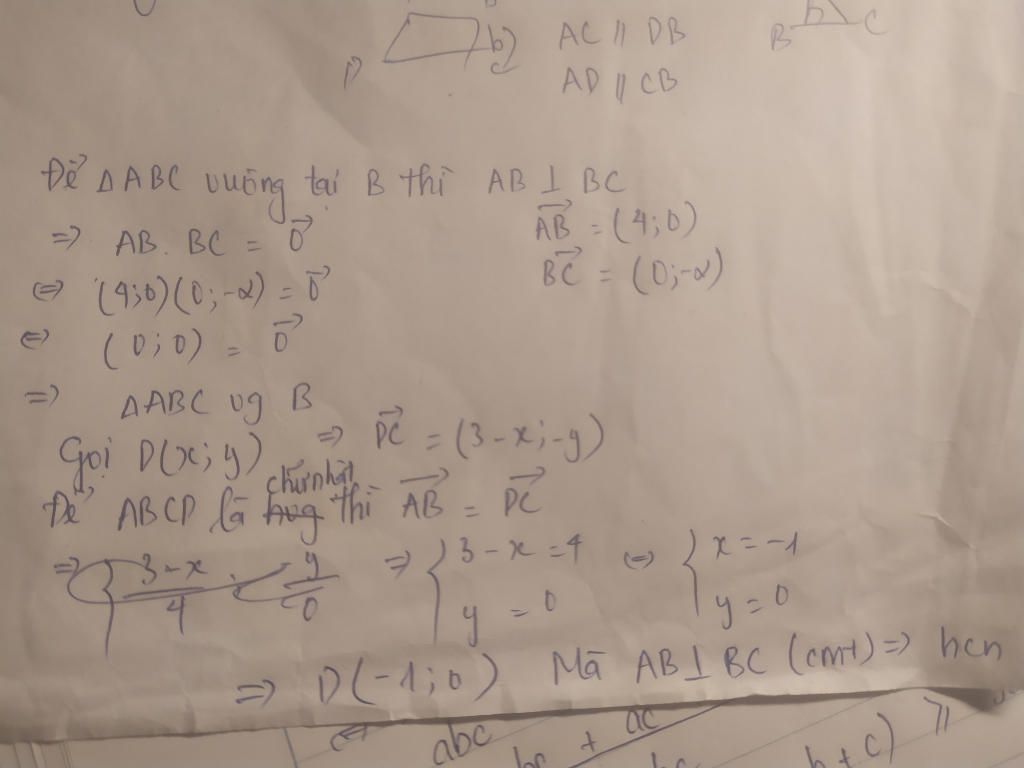 b) AC // DB
D C
AD // CB
b
B C
Để ΔABC vuông tại B thì AB ⊥ BC
=> AB. BC = 0⃗ AB⃗ = (4;0)
<=> (4;0)(0;-2) = 0⃗ BC⃗ = (0;-2)
<=> (0;0) = 0⃗
=> ΔABC vg B
Gọi D(x;y) => DC⃗ = (3-x;-y)
Để ABCD là chữ nhật thì AB⃗ = DC⃗
=> { 3-x / 4 . y / 0 => { 3-x=4 y = 0 <=> { x=-1 y=0
=> D(-1;0) Mà AB⊥BC (cmt) => hcn
<=> abc bc + ac b+c) ≥